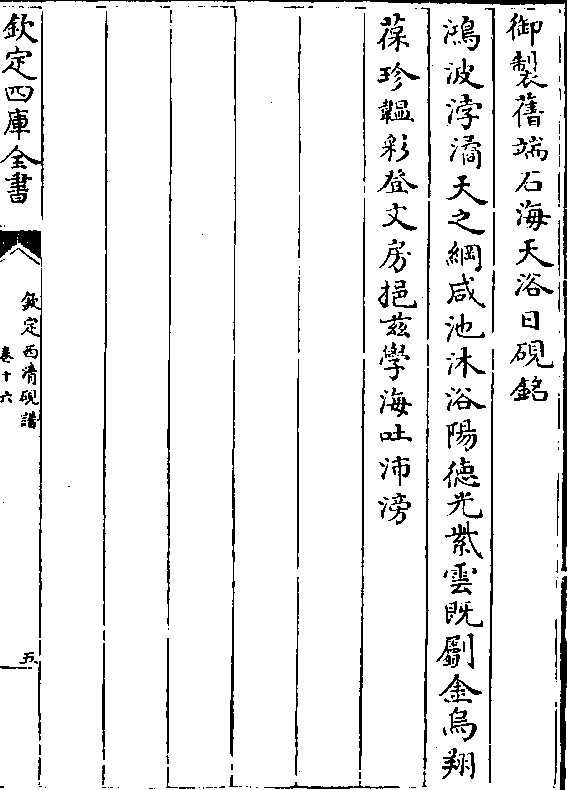 御製舊端石海天浴日硯銘
鴻波浡潏天之綱咸池沐浴陽德光紫雲既劚金烏翔
葆珍韞彩登文房挹兹學海吐沛滂
欽定四庫全書
欽定西清硯譜
卷十六
五